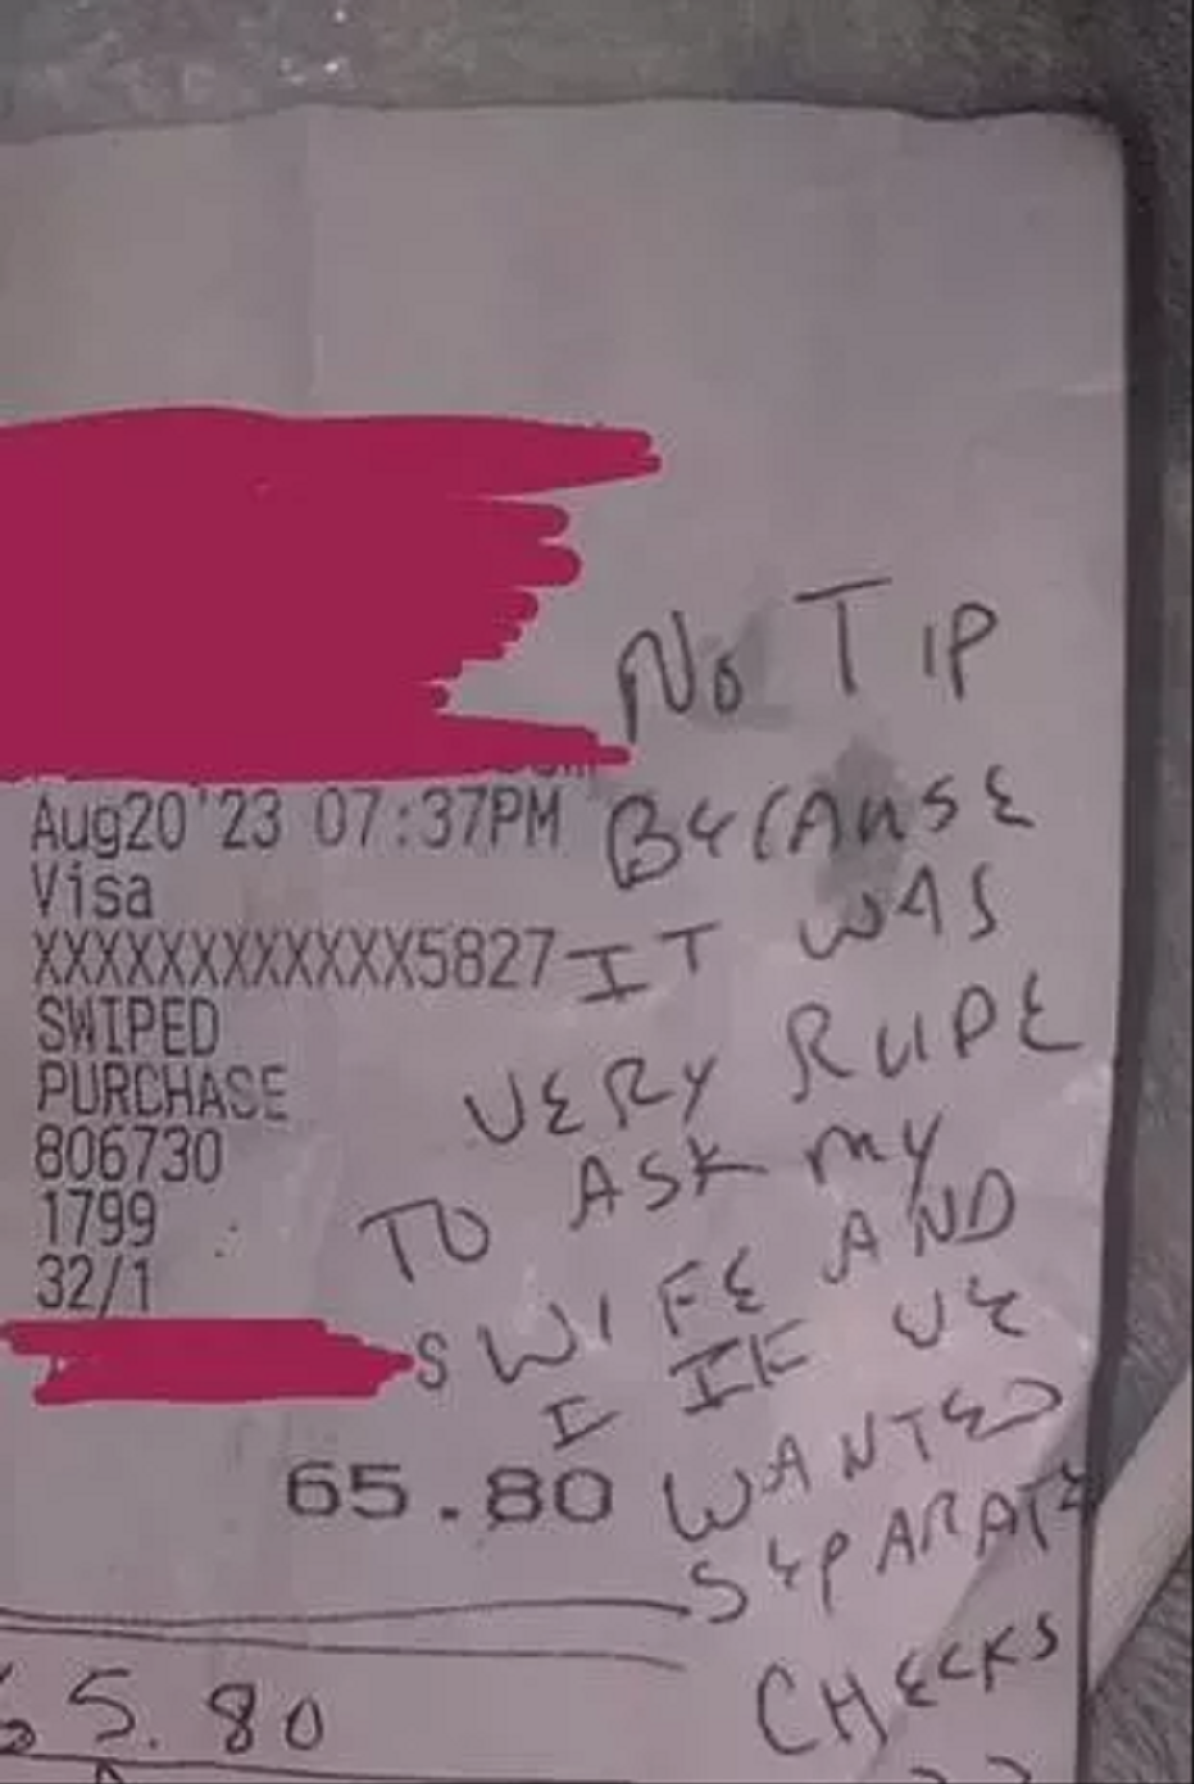 No TIP
Aug20'23 07:37PM
BECAUSE
Visa
XXXXXXXXXXXX5827
IT WAS
SWIPED
VERY RUDE
PURCHASE
TO ASK MY
806730
1799
WIFE AND
32/1
I IF WE
65.80
WANTED
SEPARATE
CHECKS
65.80